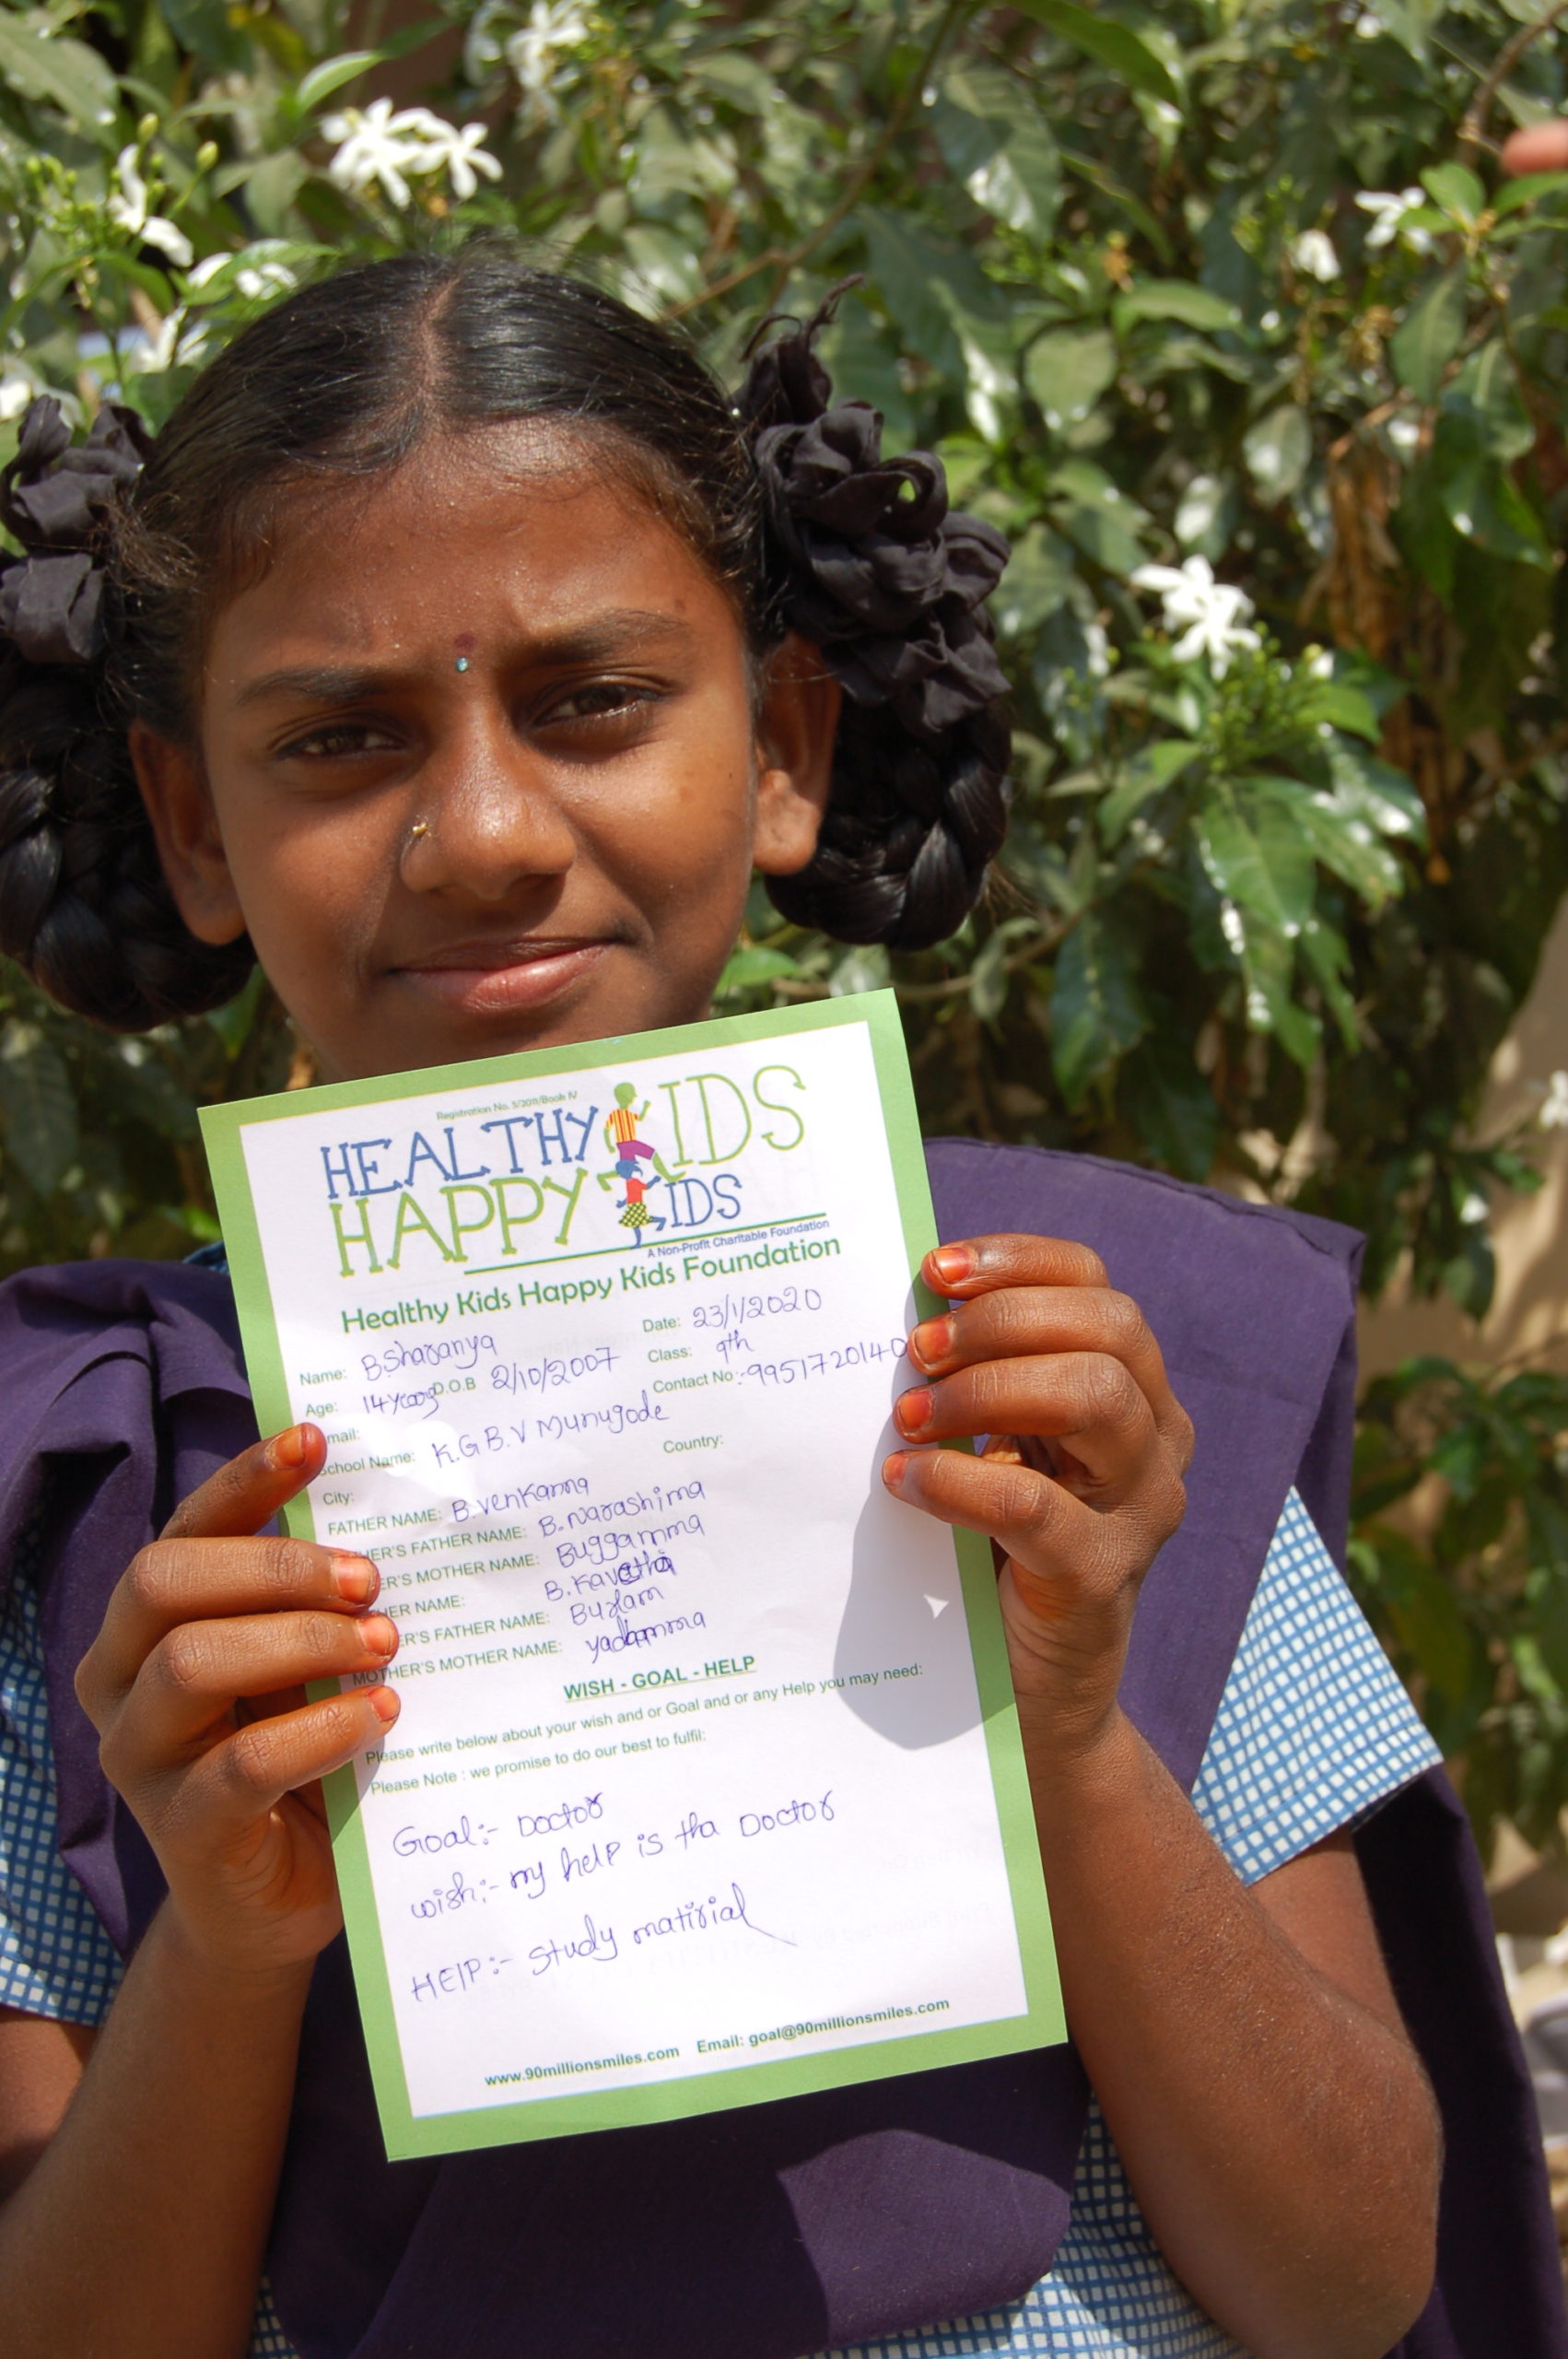 Registration No. 5/2011/Book IV
HEALTHY KIDS
HAPPY KIDS
A Non-Profit Charitable Foundation
Healthy Kids Happy Kids Foundation
Name: B Sharanya Date: 23/1/2020
Age: 14 years D.O.B 2/10/2007 Class: 9th
mail: Contact No:-9951720140
School Name: K.G.B.V Munugode
City: Country:
FATHER NAME: B. Venkanna
HER'S FATHER NAME: B. Narashima
ER'S MOTHER NAME: Buggamma
HER NAME: B. Kavetha
ER'S FATHER NAME:
MOTHER'S MOTHER NAME: yadamma
WISH - GOAL - HELP
Please write below about your wish and or Goal and or any Help you may need:
Please Note : we promise to do our best to fulfil:
Goal:- Doctor
wish:- my help is tha Doctor
HElP:- Study matirial
www.90millionsmiles.com Email: goal@90millionsmiles.com